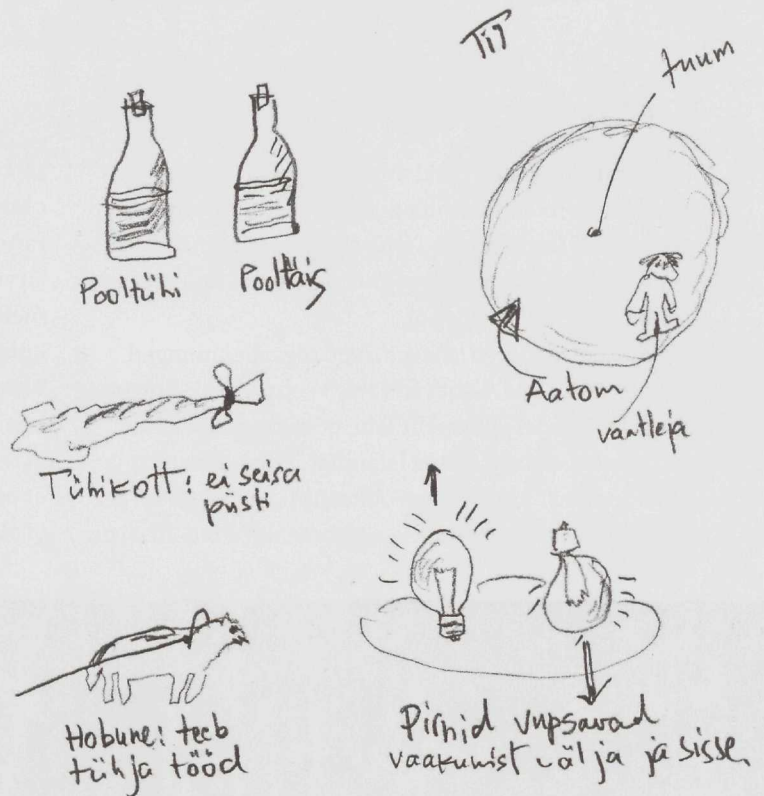 Tiit
tuum
Pooltühi
Pooltäis
Aatom
vaatleja
Tühikott: ei seisa
püsti
Hobune: teeb
tühja tööd
Pirnid vupsavad
vaakumist välja ja sisse.